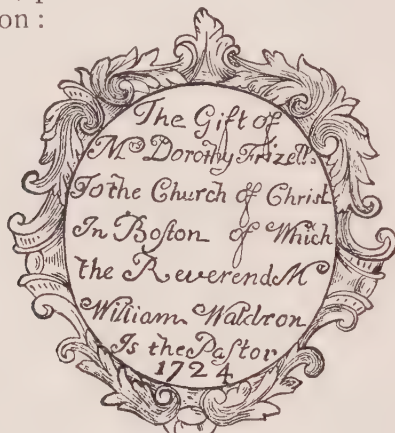 on:
The Gift of
Mrs Dorothy Frizell's
To the Church of Christ
In Boston of Which
the Reverend Mr
William Waldron
Is the Pastor
1724